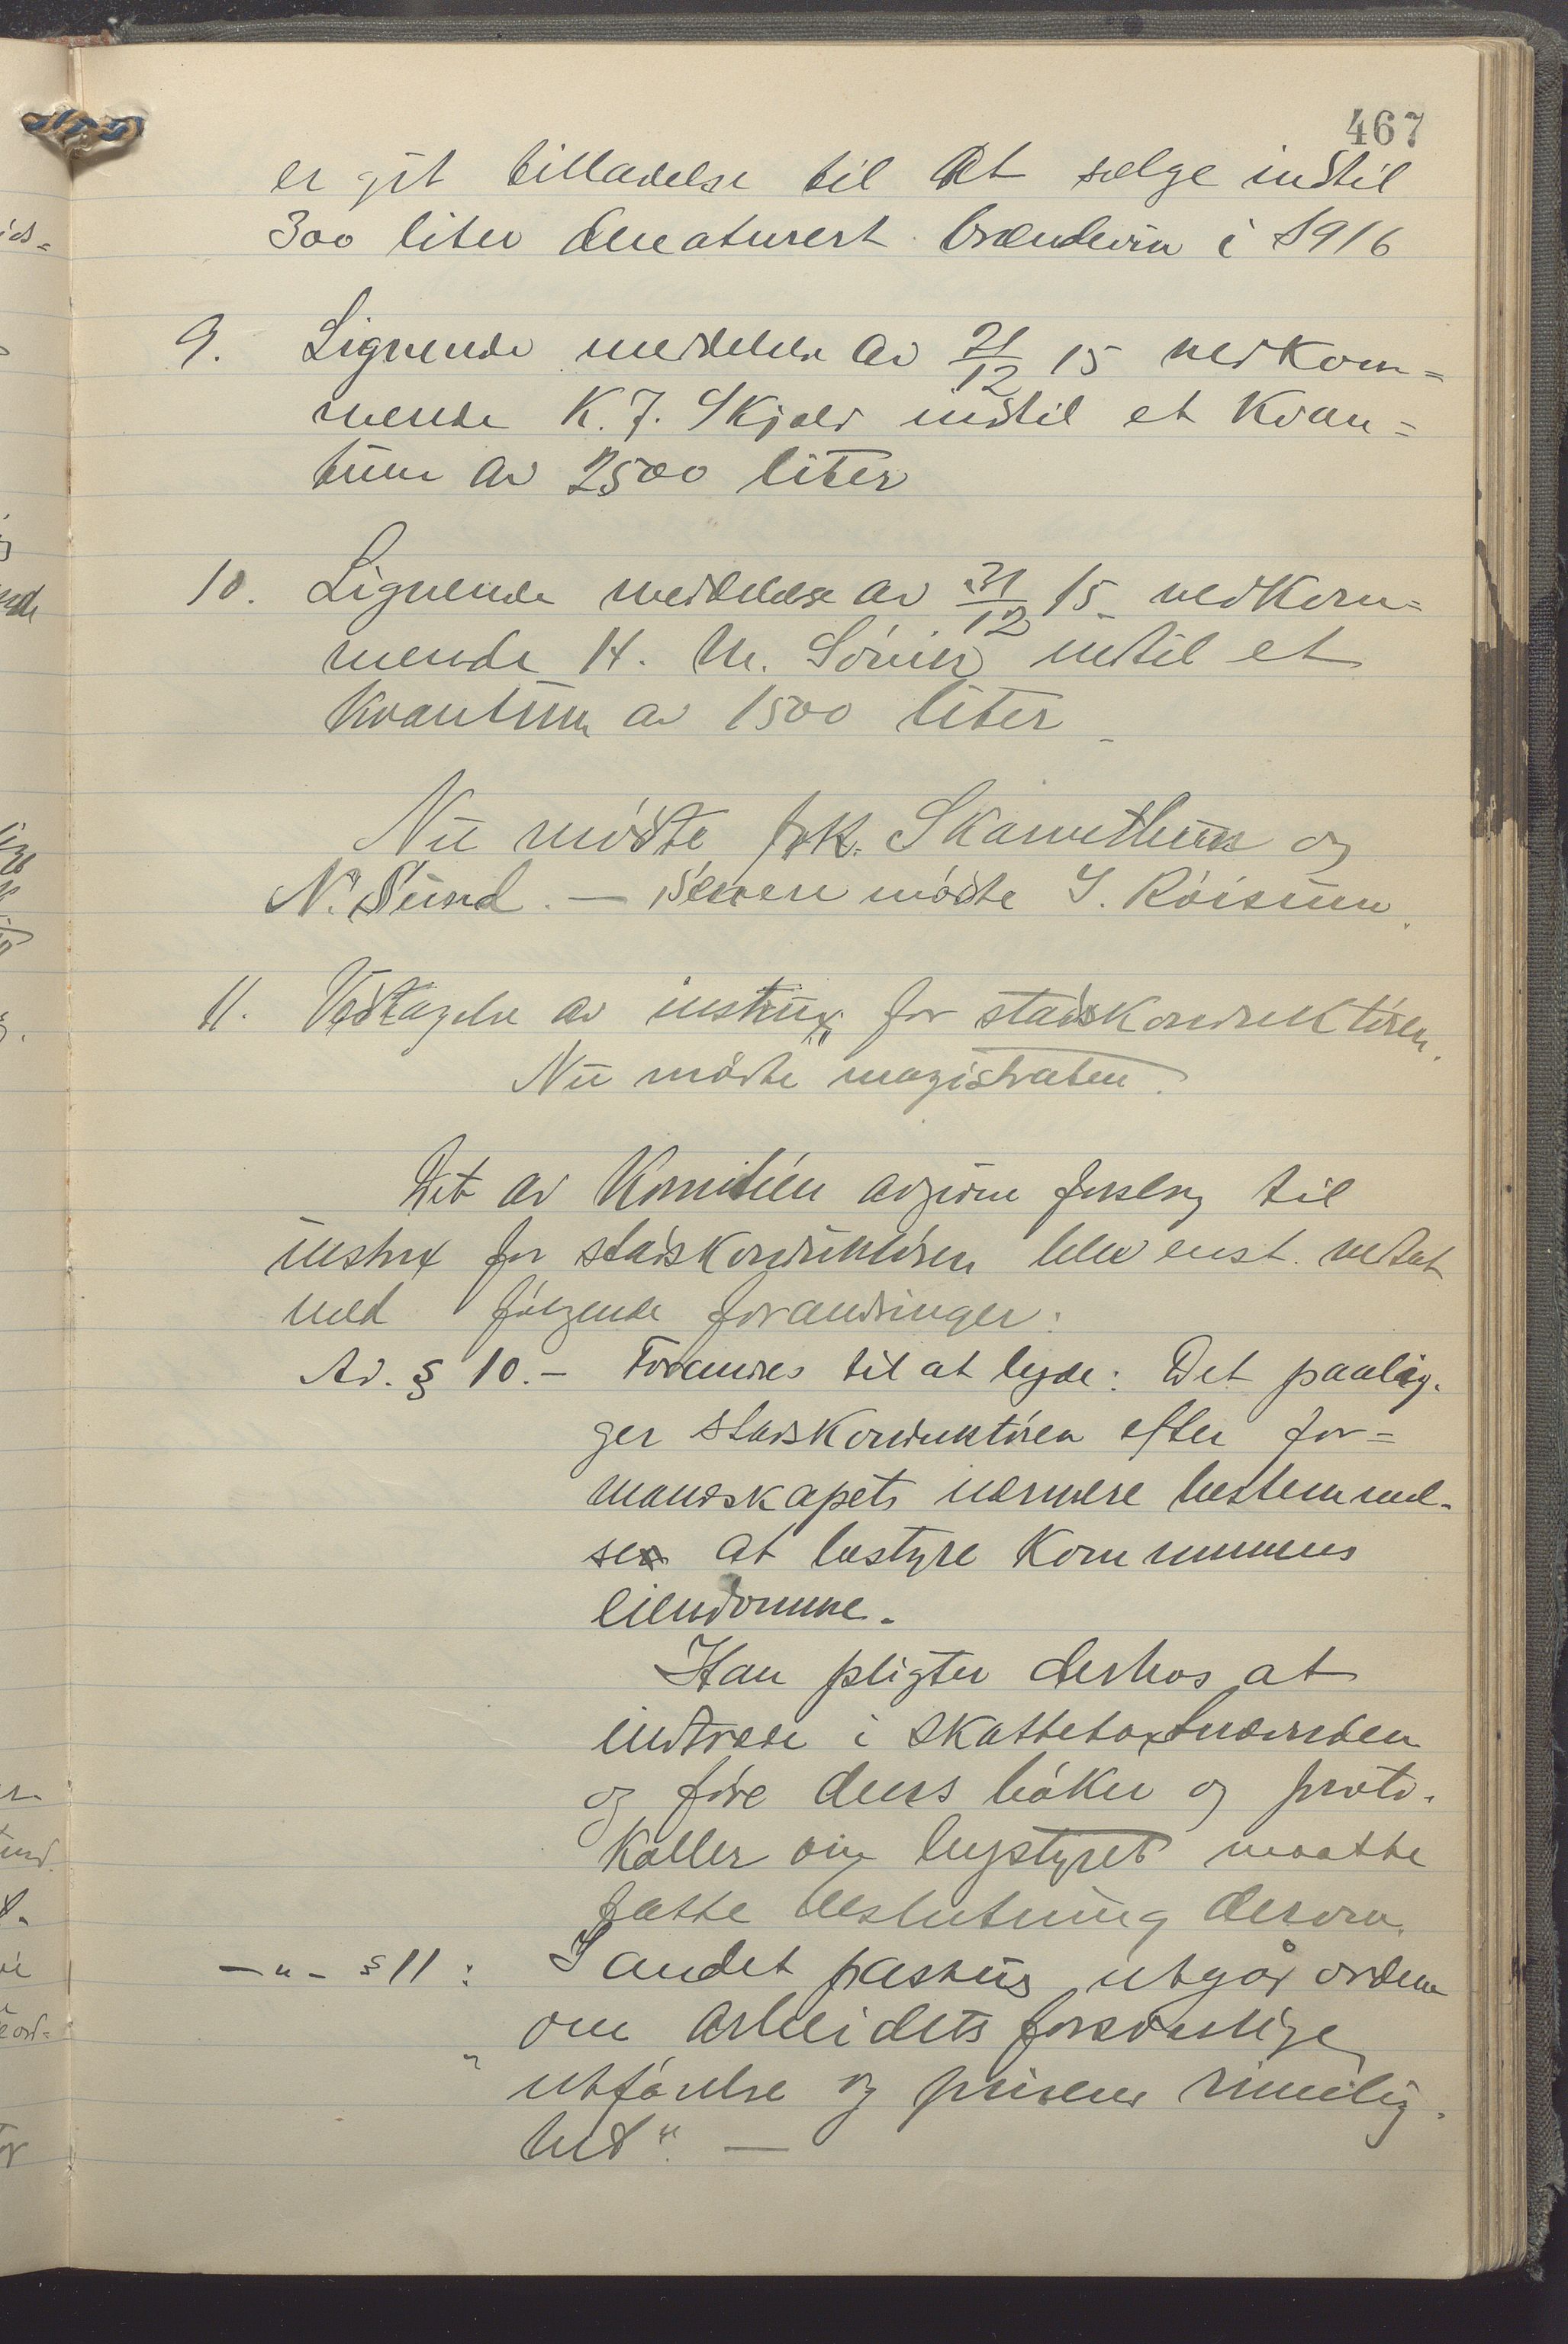 467
er git tilladelse til at sælge indtil
300 liter denaturert brændevin i 1916
9. Lignende meddelelse av 21/12 15 vedkom=
mende K. J. Skjold indtil et kvan=
tum av 2500 liter
10. Lignende meddelelse av 31/12 15 vedkom=
mende H. M. indtil et
kvantum av 1500 liter
Nu mødte frk. og
N. Sund. — senere mødte S. Röisum.
11. Vedtagelse av instrux for stadskonduktören.
Nu mødte magistraten.
Det av komitéen avgivne forslag til
instrux for stadskonduktören blev enst. vedtat
med følgende forandringer:
Ad. § 10. — Forandres til at lyde: Det paalig-
ger stadskonduktören efter for=
mandskapets nærmere bestemmel-
se at bestyre kommunens
eiendomme.
Han pligter derhos at
indtræde i skattetaxtnævnden
og føre dens bøker og proto-
koller om bystyret maatte
fatte beslutning derom.
— " — § 11: I andet passus utgår ordene
om arbeidets forsvarlige
" utførelse og prisens rimelig-
het". —